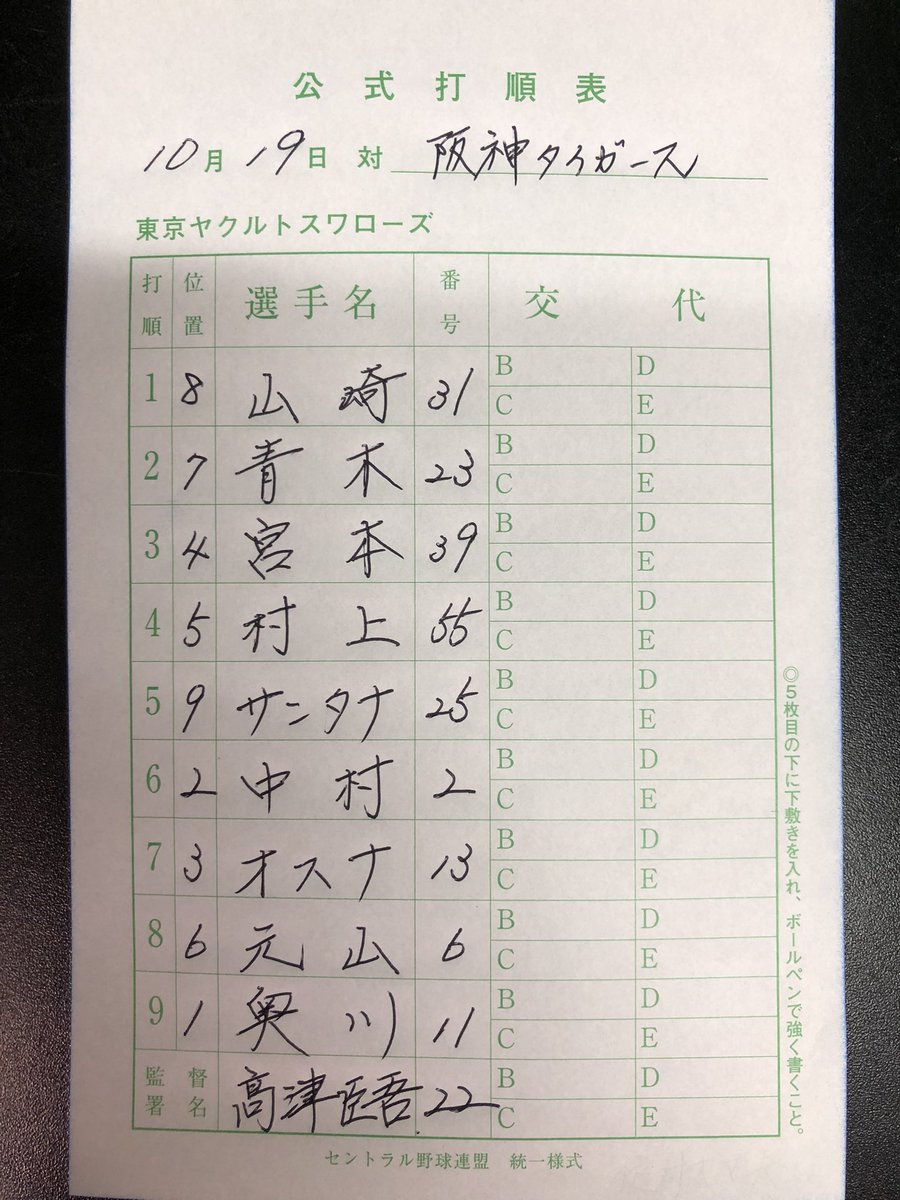 公式打順表
10月19日 対 阪神タイガース
東京ヤクルトスワローズ
打順 位置 選手名 番号 交代
1 8 山崎 31 B D
C E
2 7 青木 23 B D
C E
3 4 宮本 39 B D
C E
4 5 村上 55 B D
C E
5 9 サンタナ 25 B D
C E
6 2 中村 2 B D
C E
7 3 オスナ 13 B D
C E
8 6 元山 6 B D
C E
9 1 奥川 11 B D
C E
監督署名 高津臣吾 22 B D
C E
◎5枚目の下に下敷きを入れ、ボールペンで強く書くこと。
セントラル野球連盟 統一様式